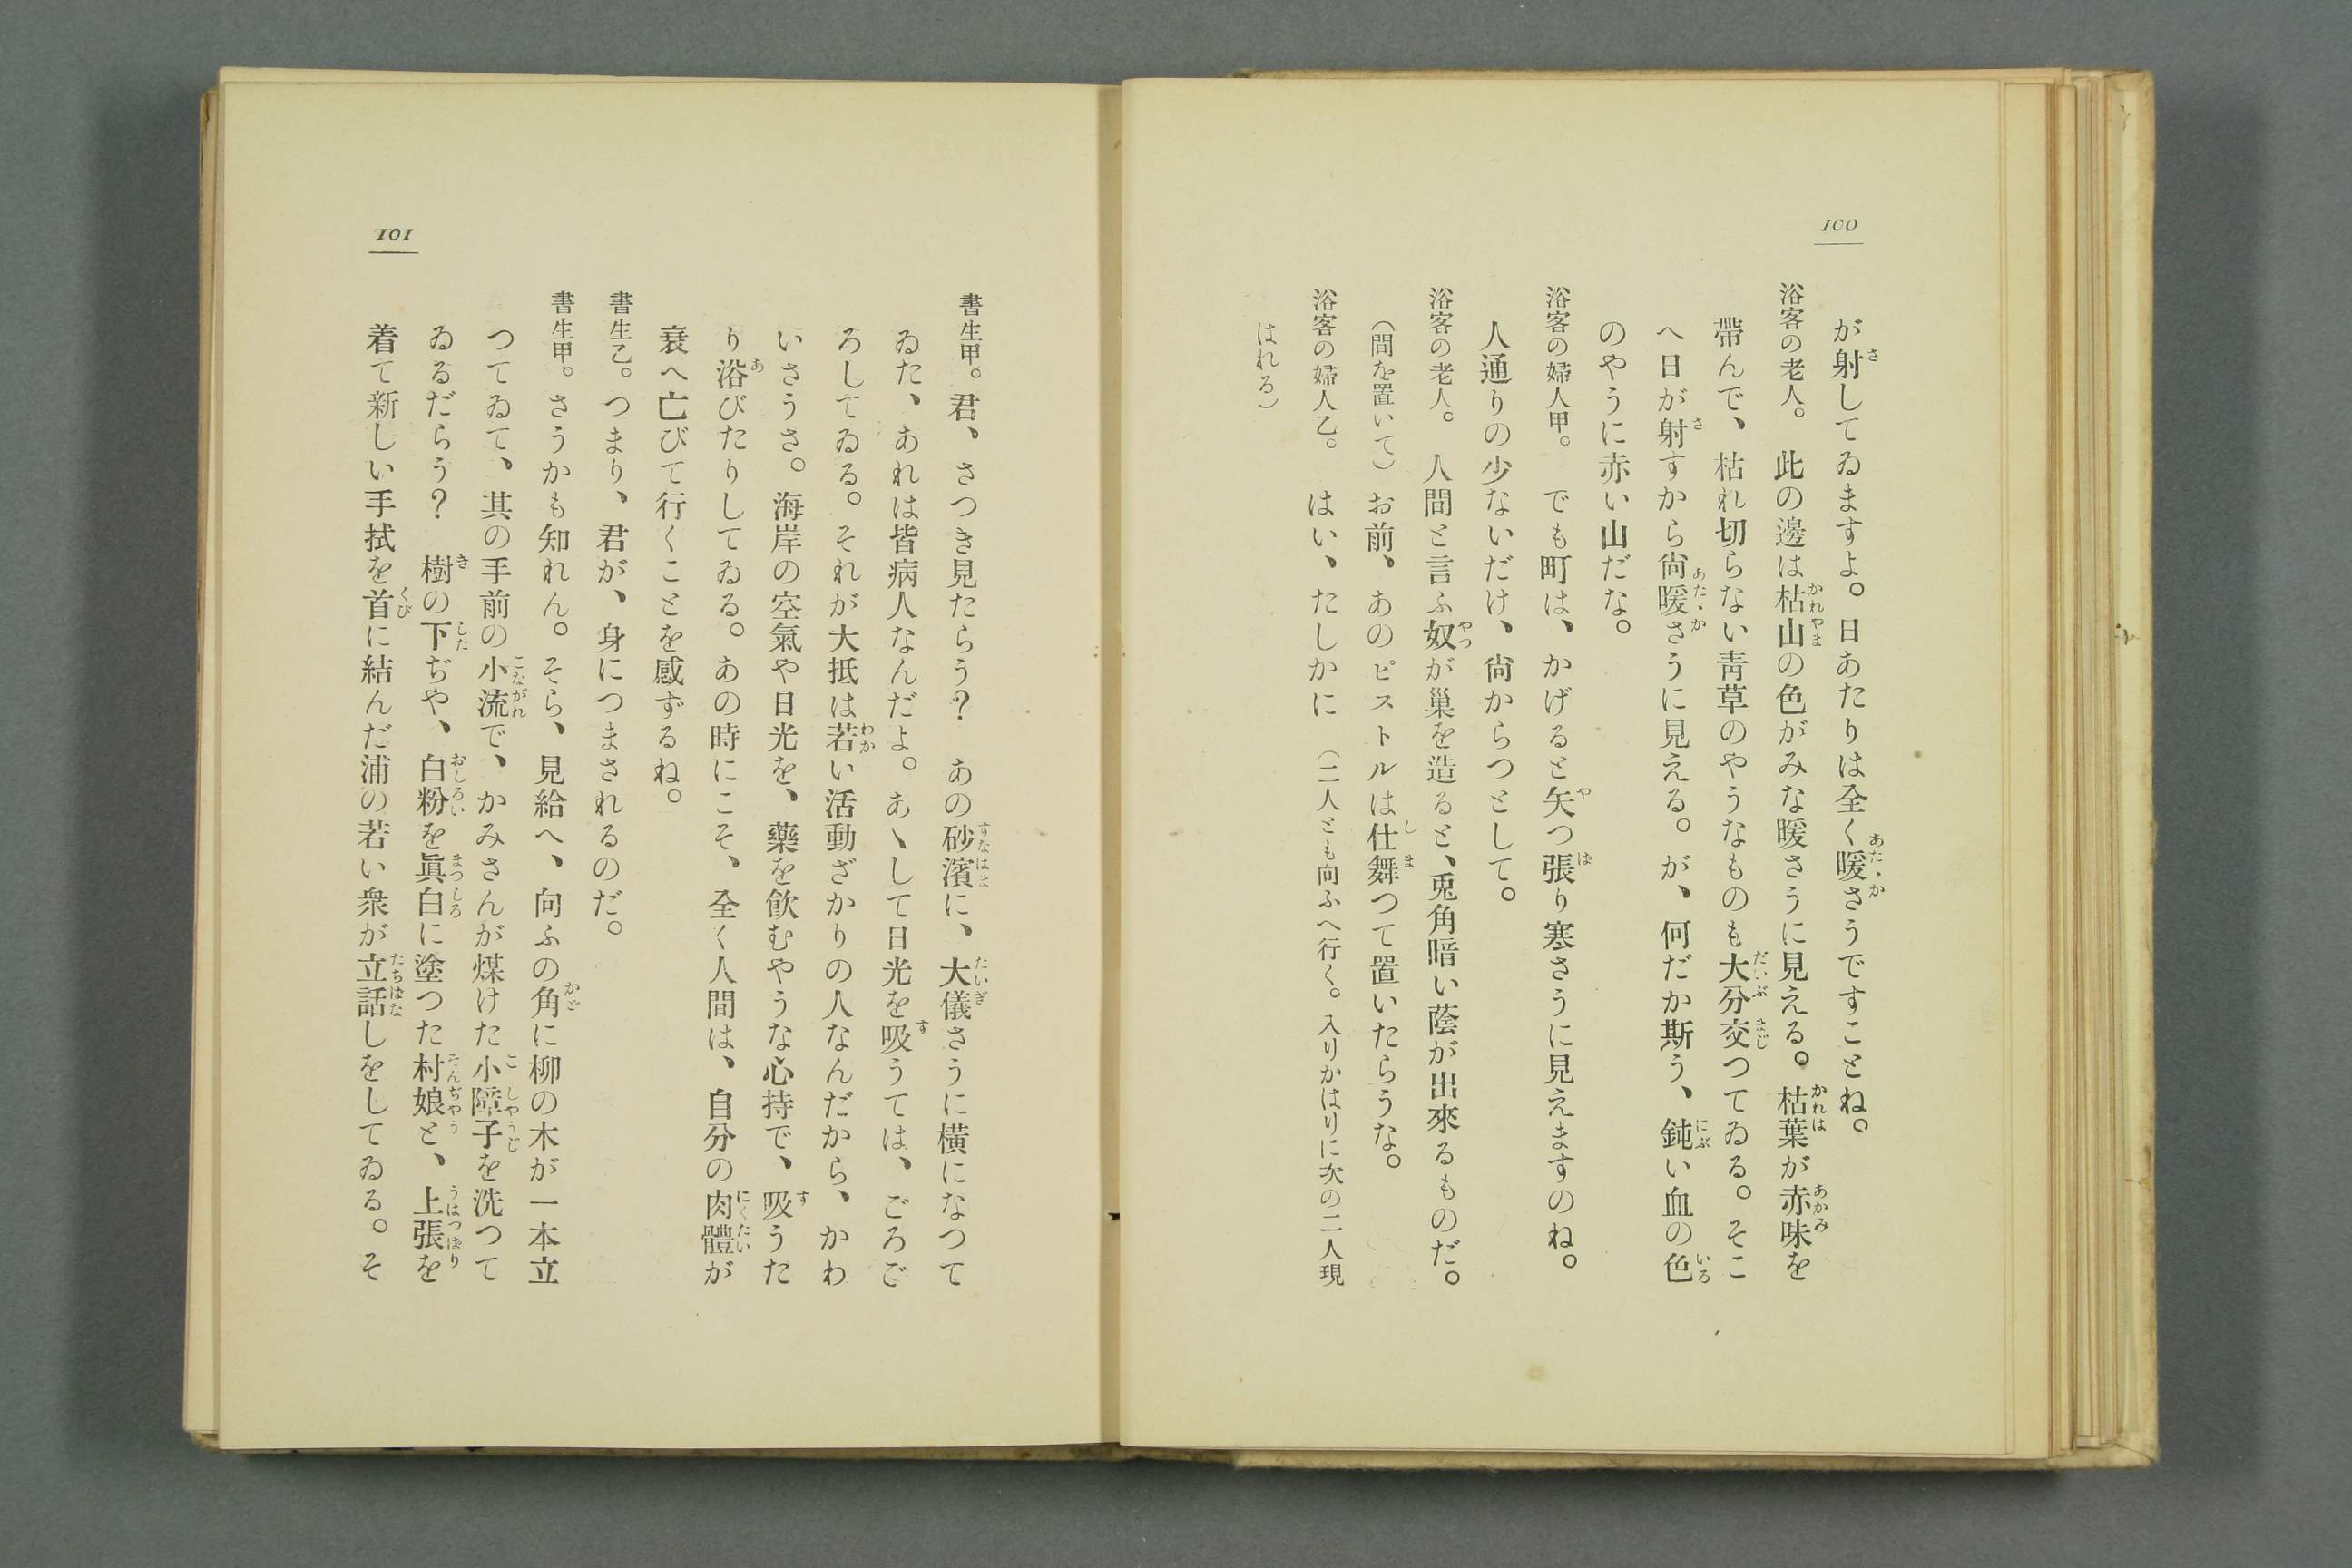 100
が射してゐますよ。日あたりは全く暖さうですことね。
浴客の老人。　此の邊は枯山の色がみな暖さうに見える。枯葉が赤味を
帶んで、枯れ切らない靑草のやうなものも大分交つてゐる。そこ
へ日が射すから尙暖さうに見える。が、何だか斯う、鈍い血の色
のやうに赤い山だな。
浴客の婦人甲。　でも町は、かげると矢つ張り寒さうに見えますのね。
人通りの少ないだけ、尙からつとして。
浴客の老人。　人間と言ふ奴が巢を造ると、兎角暗い蔭が出來るものだ。
（間を置いて）お前、あのピストルは仕舞つて置いたらうな。
浴客の婦人乙。　はい、たしかに　（二人とも向ふへ行く。入りかはりに次の二人現
はれる）
101
書生甲。君、さつき見たらう？　あの砂濱に、大儀さうに橫になつて
ゐた、あれは皆病人なんだよ。あゝして日光を吸うては、ごろご
ろしてゐる。それが大抵は若い活動ざかりの人なんだから、かわ
いさうさ。海岸の空氣や日光を、藥を飮むやうな心持で、吸うた
り浴びたりしてゐる。あの時にこそ、全く人間は、自分の肉體が
衰へ亡びて行くことを感ずるね。
書生乙。つまり、君が、身につまされるのだ。
書生甲。さうかも知れん。そら、見給へ、向ふの角に柳の木が一本立
つてゐて、其の手前の小流で、かみさんが煤けた小障子を洗つて
ゐるだらう？　樹の下ぢや、白粉を眞白に塗つた村娘と、上張を
着て新しい手拭を首に結んだ浦の若い衆が立話しをしてゐる。そ